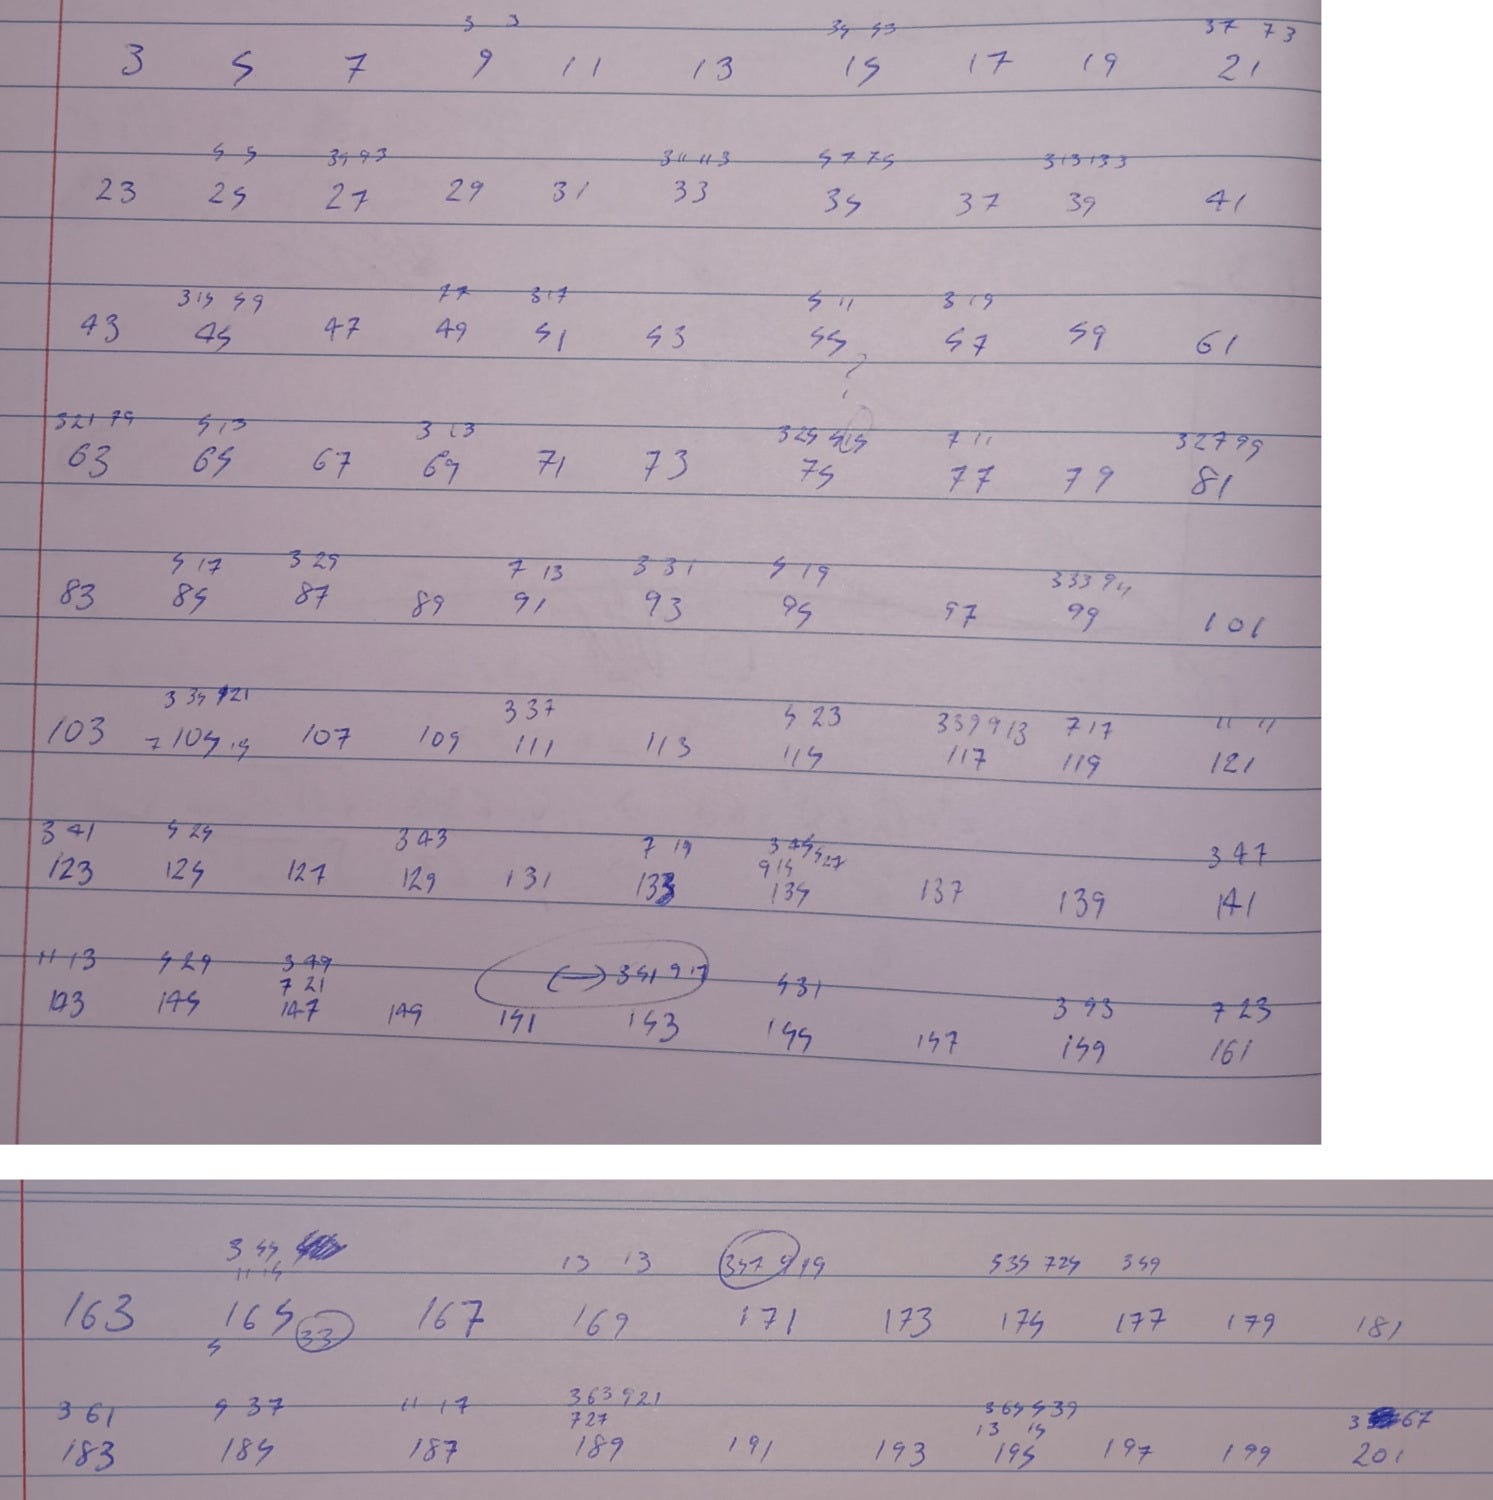 3 3 35 53 37 73
3 5 7 9 11 13 15 17 19 21
5 5 39 93 3 11 11 3 5 7 7 5 313 13 3
23 25 27 29 31 33 35 37 39 41
3 15 5 9 7 7 3 17 5 11 3 19
43 45 47 49 51 53 55 57 59 61
?
3 21 7 9 5 13 3 23 3 25 5 15 7 11 3 27 9 9
63 65 67 69 71 73 75 77 79 81
5 17 3 29 7 13 3 31 5 19 3 33 9 11
83 85 87 89 91 93 95 97 99 101
3 35 21 3 37 5 23 3 39 9 13 7 17 11 11
103 7 105 15 107 109 111 113 115 117 119 121
3 41 5 25 3 43 7 19 3 45 5 27 3 47
9 15
123 125 127 129 131 133 135 137 139 141
11 13 5 29 3 49 (→) 3 51 9 17 5 31 3 53 7 23
7 21
143 145 147 149 151 153 155 157 159 161
3 55 13 13 3 57 9 19 5 35 7 25 3 59
11 15
163 165 167 169 171 173 175 177 179 181
5 33
3 61 5 37 11 17 3 63 9 21 3 65 5 39 3 67
7 27 13 15
183 185 187 189 191 193 195 197 199 201